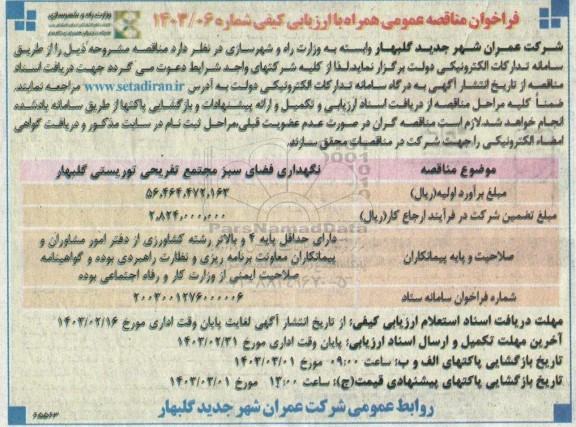 وزارت راه و شهرسازی
فراخوان مناقصه عمومی همراه با ارزیابی کیفی شماره ۱۴۰۳/۰۶
شرکت عمران شهر جدید گلبهار وابسته به وزارت راه و شهرسازی در نظر دارد مناقصه مشروحه ذیل را از طریق
سامانه تدارکات الکترونیکی دولت برگزار نماید.لذا از کلیه شرکتهای واجد شرایط دعوت می گردد جهت دریافت اسناد
مناقصه از تاریخ انتشار آگهی به درگاه سامانه تدارکات الکترونیکی دولت به آدرس www.setadiran.ir مراجعه نمایند.
ضمناً کلیه مراحل مناقصه از دریافت اسناد ارزیابی و تکمیل و ارائه پیشنهادات و بازگشایی پاکتها از طریق سامانه یادشده
انجام خواهد شد.لازم است مناقصه گران در صورت عدم عضویت قبلی،مراحل ثبت نام در سایت مذکور و دریافت گواهی
امضاء الکترونیکی را جهت شرکت در مناقصات محقق سازند.
موضوع مناقصه نگهداری فضای سبز مجتمع تفریحی توریستی گلبهار
مبلغ برآورد اولیه(ریال) ۵۶,۴۶۴,۴۷۲,۱۶۳
مبلغ تضمین شرکت در فرآیند ارجاع کار(ریال) ۲,۸۲۴,۰۰۰,۰۰۰
صلاحیت و پایه پیمانکاران دارای حداقل پایه ۴ و بالاتر رشته کشاورزی از دفتر امور مشاوران و
پیمانکاران معاونت برنامه ریزی و نظارت راهبردی بوده و گواهینامه
صلاحیت ایمنی از وزارت کار و رفاه اجتماعی بوده
شماره فراخوان سامانه ستاد ۲۰۰۳۰۰۱۲۷۶۰۰۰۰۰۶
مهلت دریافت اسناد استعلام ارزیابی کیفی: از تاریخ انتشار آگهی لغایت پایان وقت اداری مورخ ۱۴۰۳/۰۲/۱۶
آخرین مهلت تکمیل و ارسال اسناد ارزیابی: پایان وقت اداری مورخ ۱۴۰۳/۰۲/۳۱
تاریخ بازگشایی پاکتهای الف و ب: ساعت ۰۹:۰۰ مورخ ۱۴۰۳/۰۳/۰۱
تاریخ بازگشایی پاکتهای پیشنهادی قیمت(ج): ساعت ۱۳:۰۰ مورخ ۱۴۰۳/۰۳/۰۱
روابط عمومی شرکت عمران شهر جدید گلبهار
۶۵۵۶۳
ParsNamadData